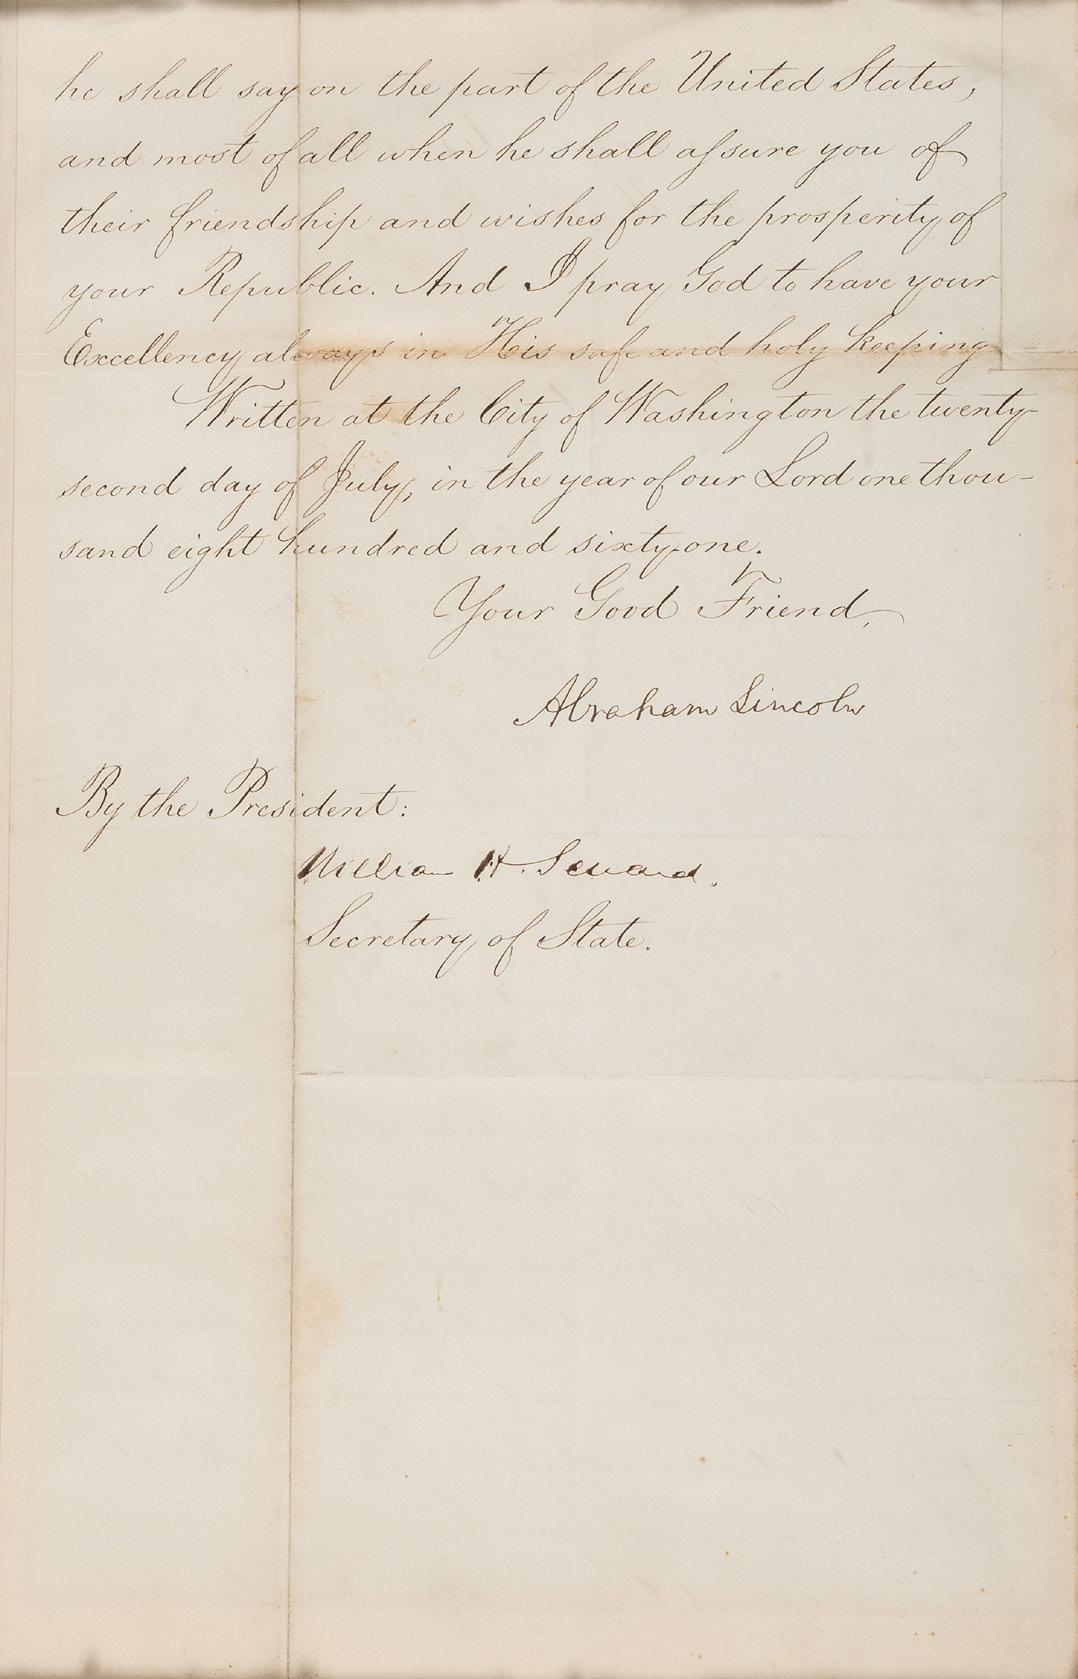 he shall say on the part of the United States,
and most of all when he shall assure you of
their friendship and wishes for the prosperity of
your Republic. And I pray God to have your
Excellency always in His safe and holy keeping
Written at the City of Washington the twenty-
second day of July, in the year of our Lord one thou-
sand eight hundred and sixty-one.
Your Good Friend,
Abraham Lincoln
By the President:
William H. Seward.
Secretary of State.